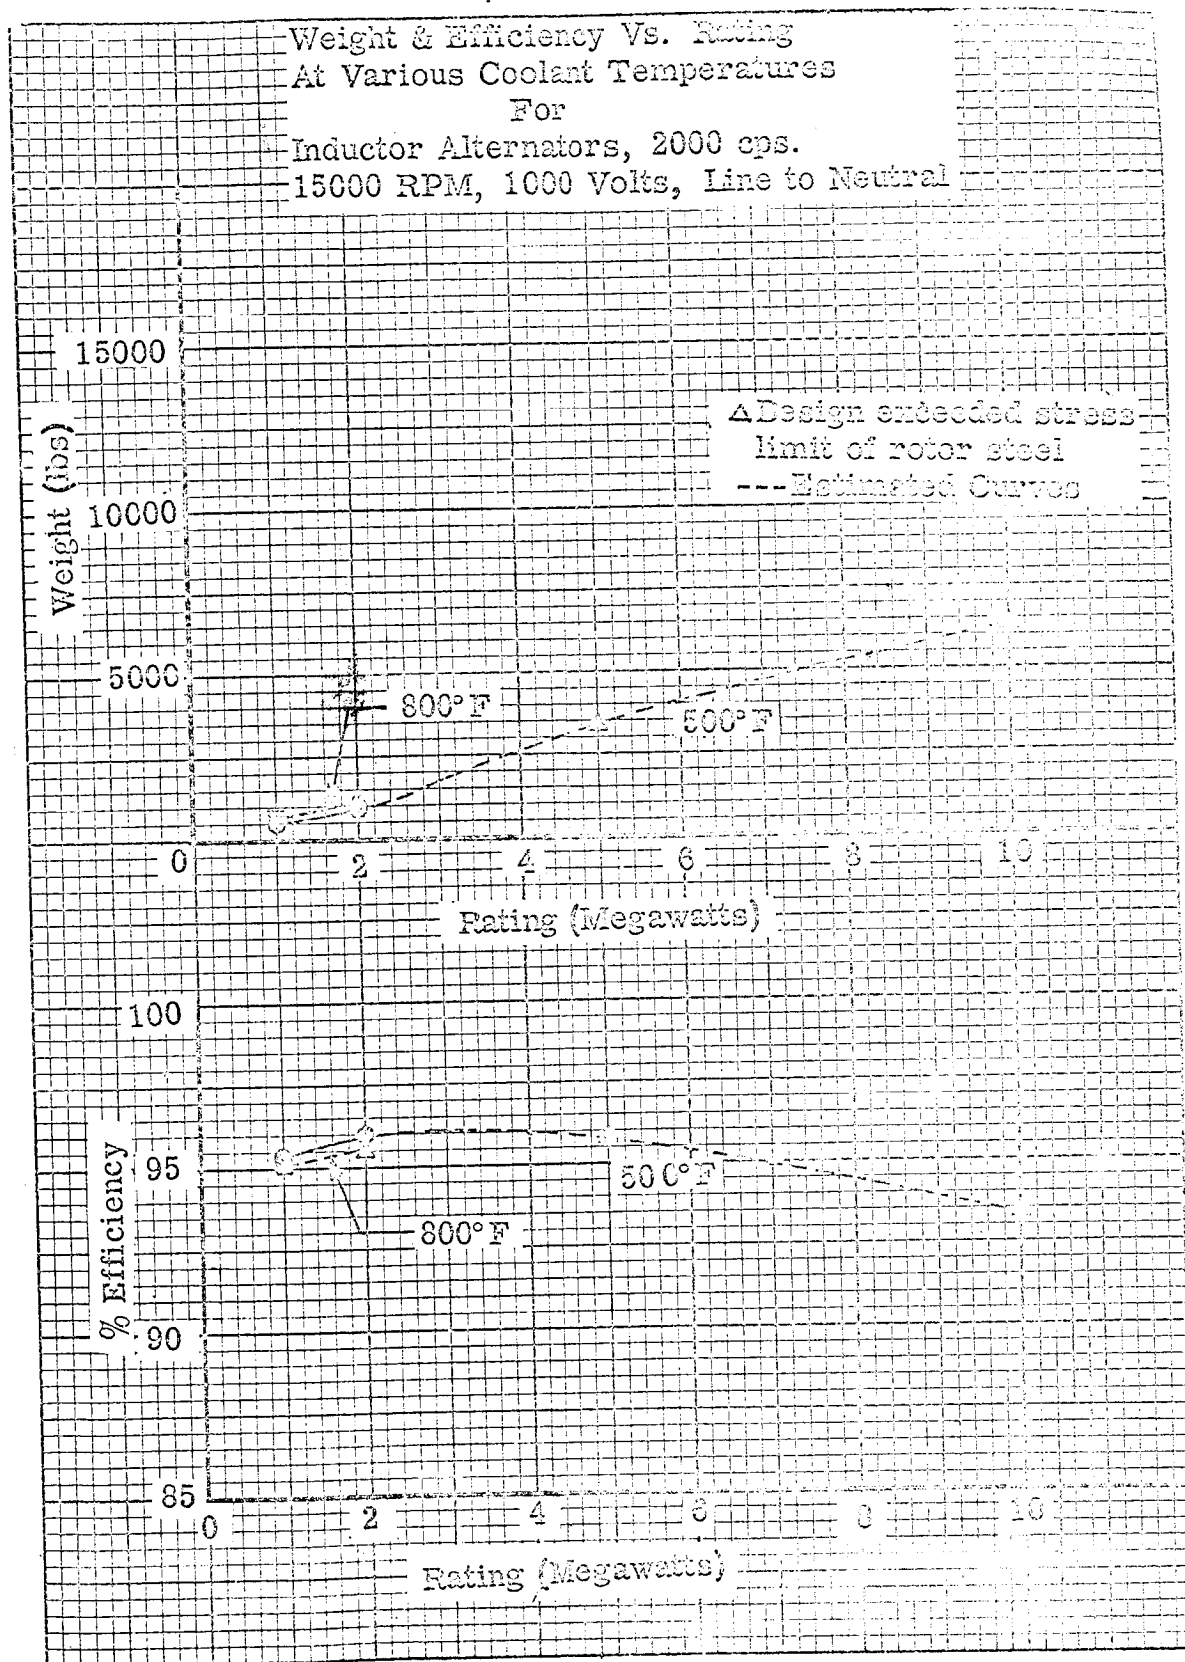 Weight & Efficiency Vs. Rating
At Various Coolant Temperatures
For
Inductor Alternators, 2000 cps.
15000 RPM, 1000 Volts, Line to Neutral
15000
Δ Design exceeded stress
limit of rotor steel
--- Estimated Curves
Weight (lbs)
10000
5000
800°F
500°F
0 2 4 6 8 10
Rating (Megawatts)
100
% Efficiency
95
500°F
800°F
90
85
0 2 4 6 8 10
Rating (Megawatts)